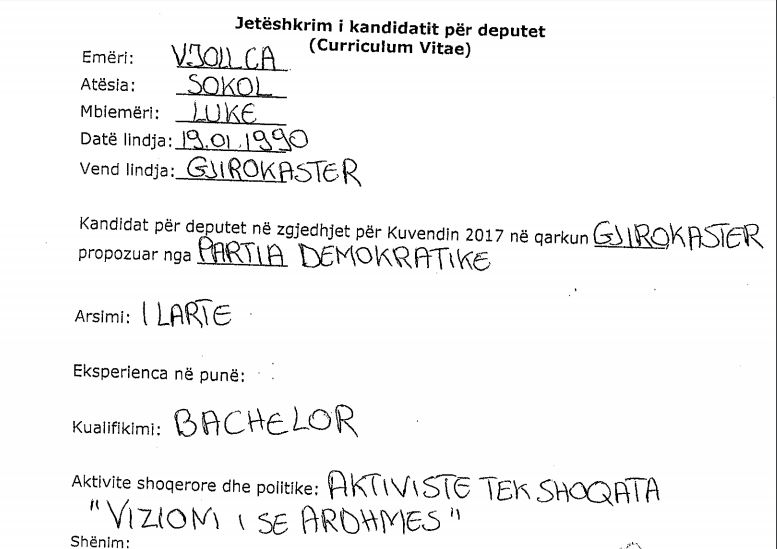 Jetëshkrim i kandidatit për deputet
(Curriculum Vitae)
Emëri: VJOLLCA
Atësia: SOKOL
Mbiemëri: LUKE
Datë lindja: 19.01.1990
Vend lindja: GJIROKASTER
Kandidat për deputet në zgjedhjet për Kuvendin 2017 në qarkun GJIROKASTER
propozuar nga PARTIA DEMOKRATIKE
Arsimi: I LARTE
Eksperienca në punë:
Kualifikimi: BACHELOR
Aktivite shoqerore dhe politike: AKTIVISTE TEK SHOQATA
"VIZIONI I SE ARDHMES"
Shënim: